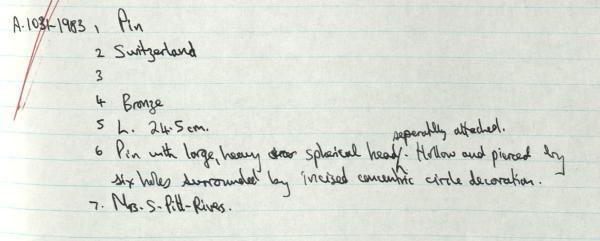 A.1031-1983 1 Pin
2 Switzerland
3
4 Bronze
5 L. 24.5 cm.
separately attached.
6 Pin with large, heavy spherical head. Hollow and pierced by
six holes surrounded by incised concentric circle decoration.
7. Mrs. S. Pitt-Rivers.